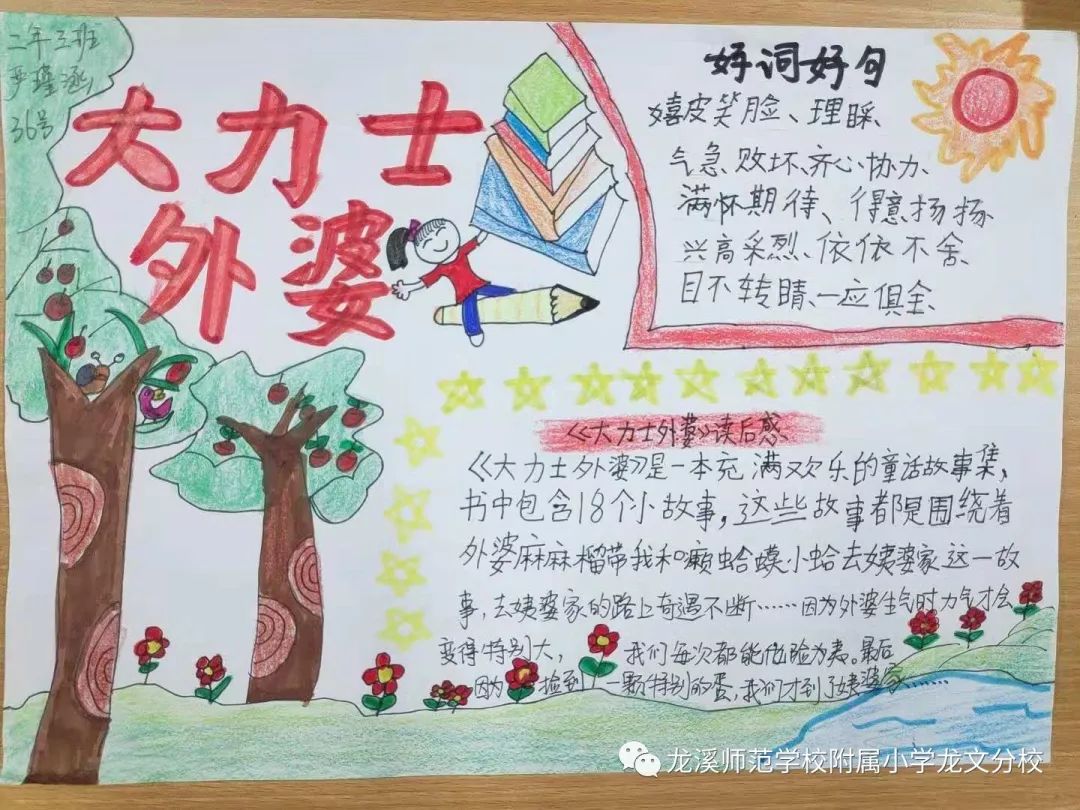 二年三班
36号
大力士
外婆
好词好句
嬉皮笑脸、理睬、
气急败坏、齐心协力、
满怀期待、得意扬扬、
兴高采烈、依依不舍、
目不转睛、一应俱全、
《大力士外婆》读后感
《大力士外婆》是一本充满欢乐的童话故事集，
书中包含18个小故事，这些故事都是围绕着
外婆麻麻榴带我和癞蛤蟆小蛤去姨婆家这一故
事，去姨婆家的路上奇遇不断……因为外婆生气时力气才会
变得特别大， 我们每次都能化险为夷。最后
因为 捡到 一颗特别的蛋，我们才到了姨婆家……
龙溪师范学校附属小学龙文分校